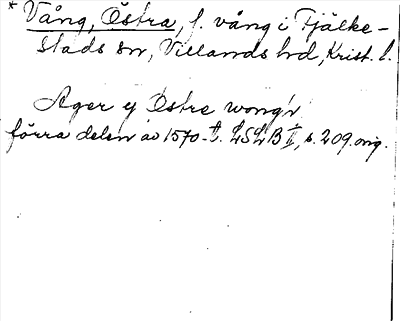 * Vång, Östra, f. vång i Fjälke-
stads sn, Villands hd, Krist. l.
Ager y Østre wong'n
förra delen av 1570-t. LSLB II, s. 209. orig.